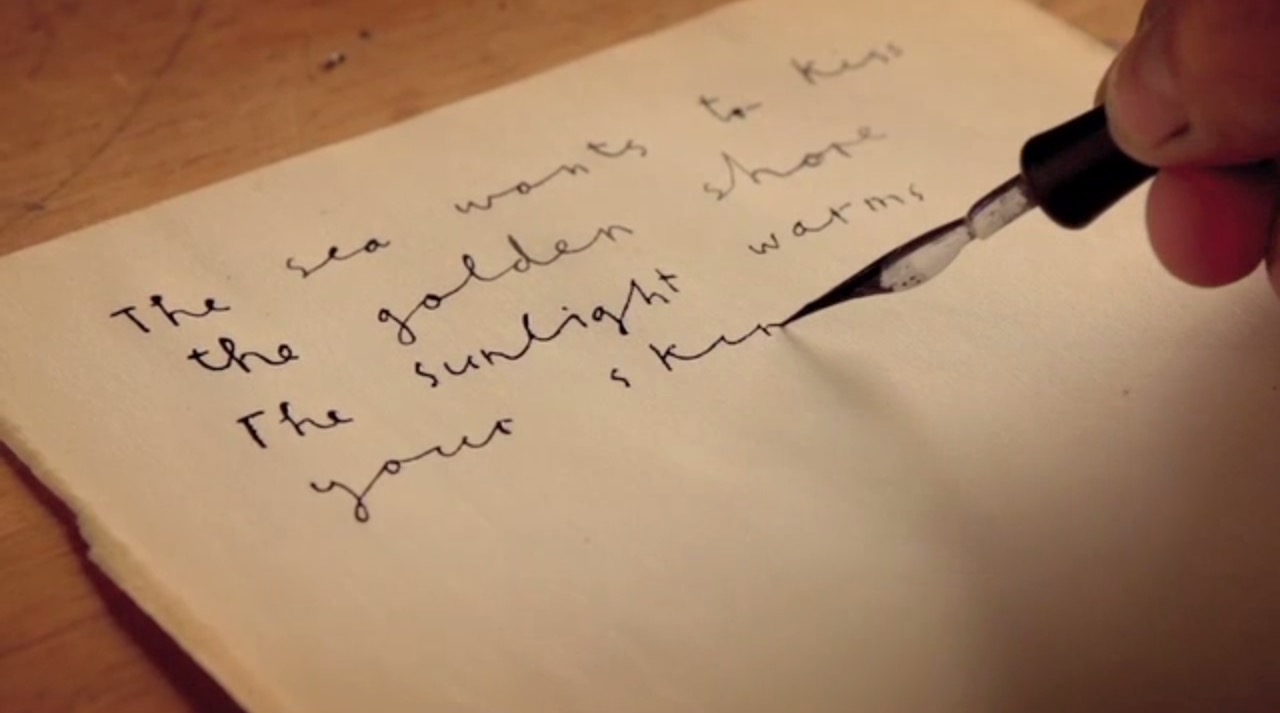 The sea wants to kiss
the golden shore
The sunlight warms
your skin